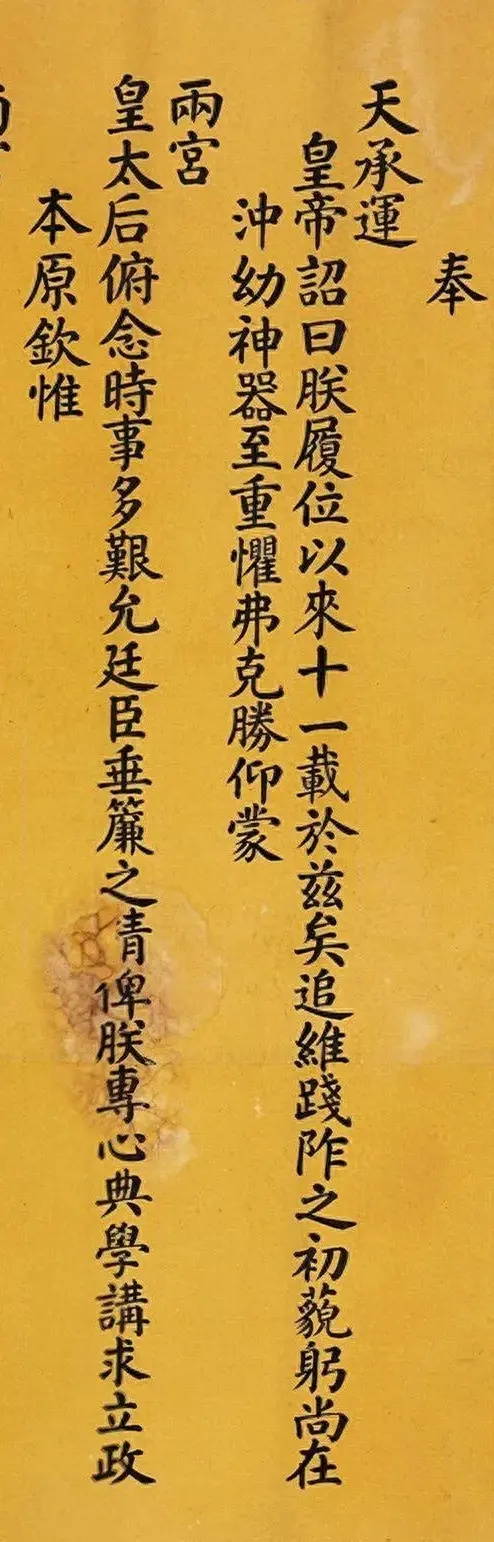 奉
天承運
皇帝詔曰朕履位以來十一載於兹矣追維踐阼之初藐躬尚在
沖幼神器至重懼弗克勝仰蒙
兩宮
皇太后俯念時事多艱允廷臣垂簾之青俾朕專心典學講求立政
本原欽惟